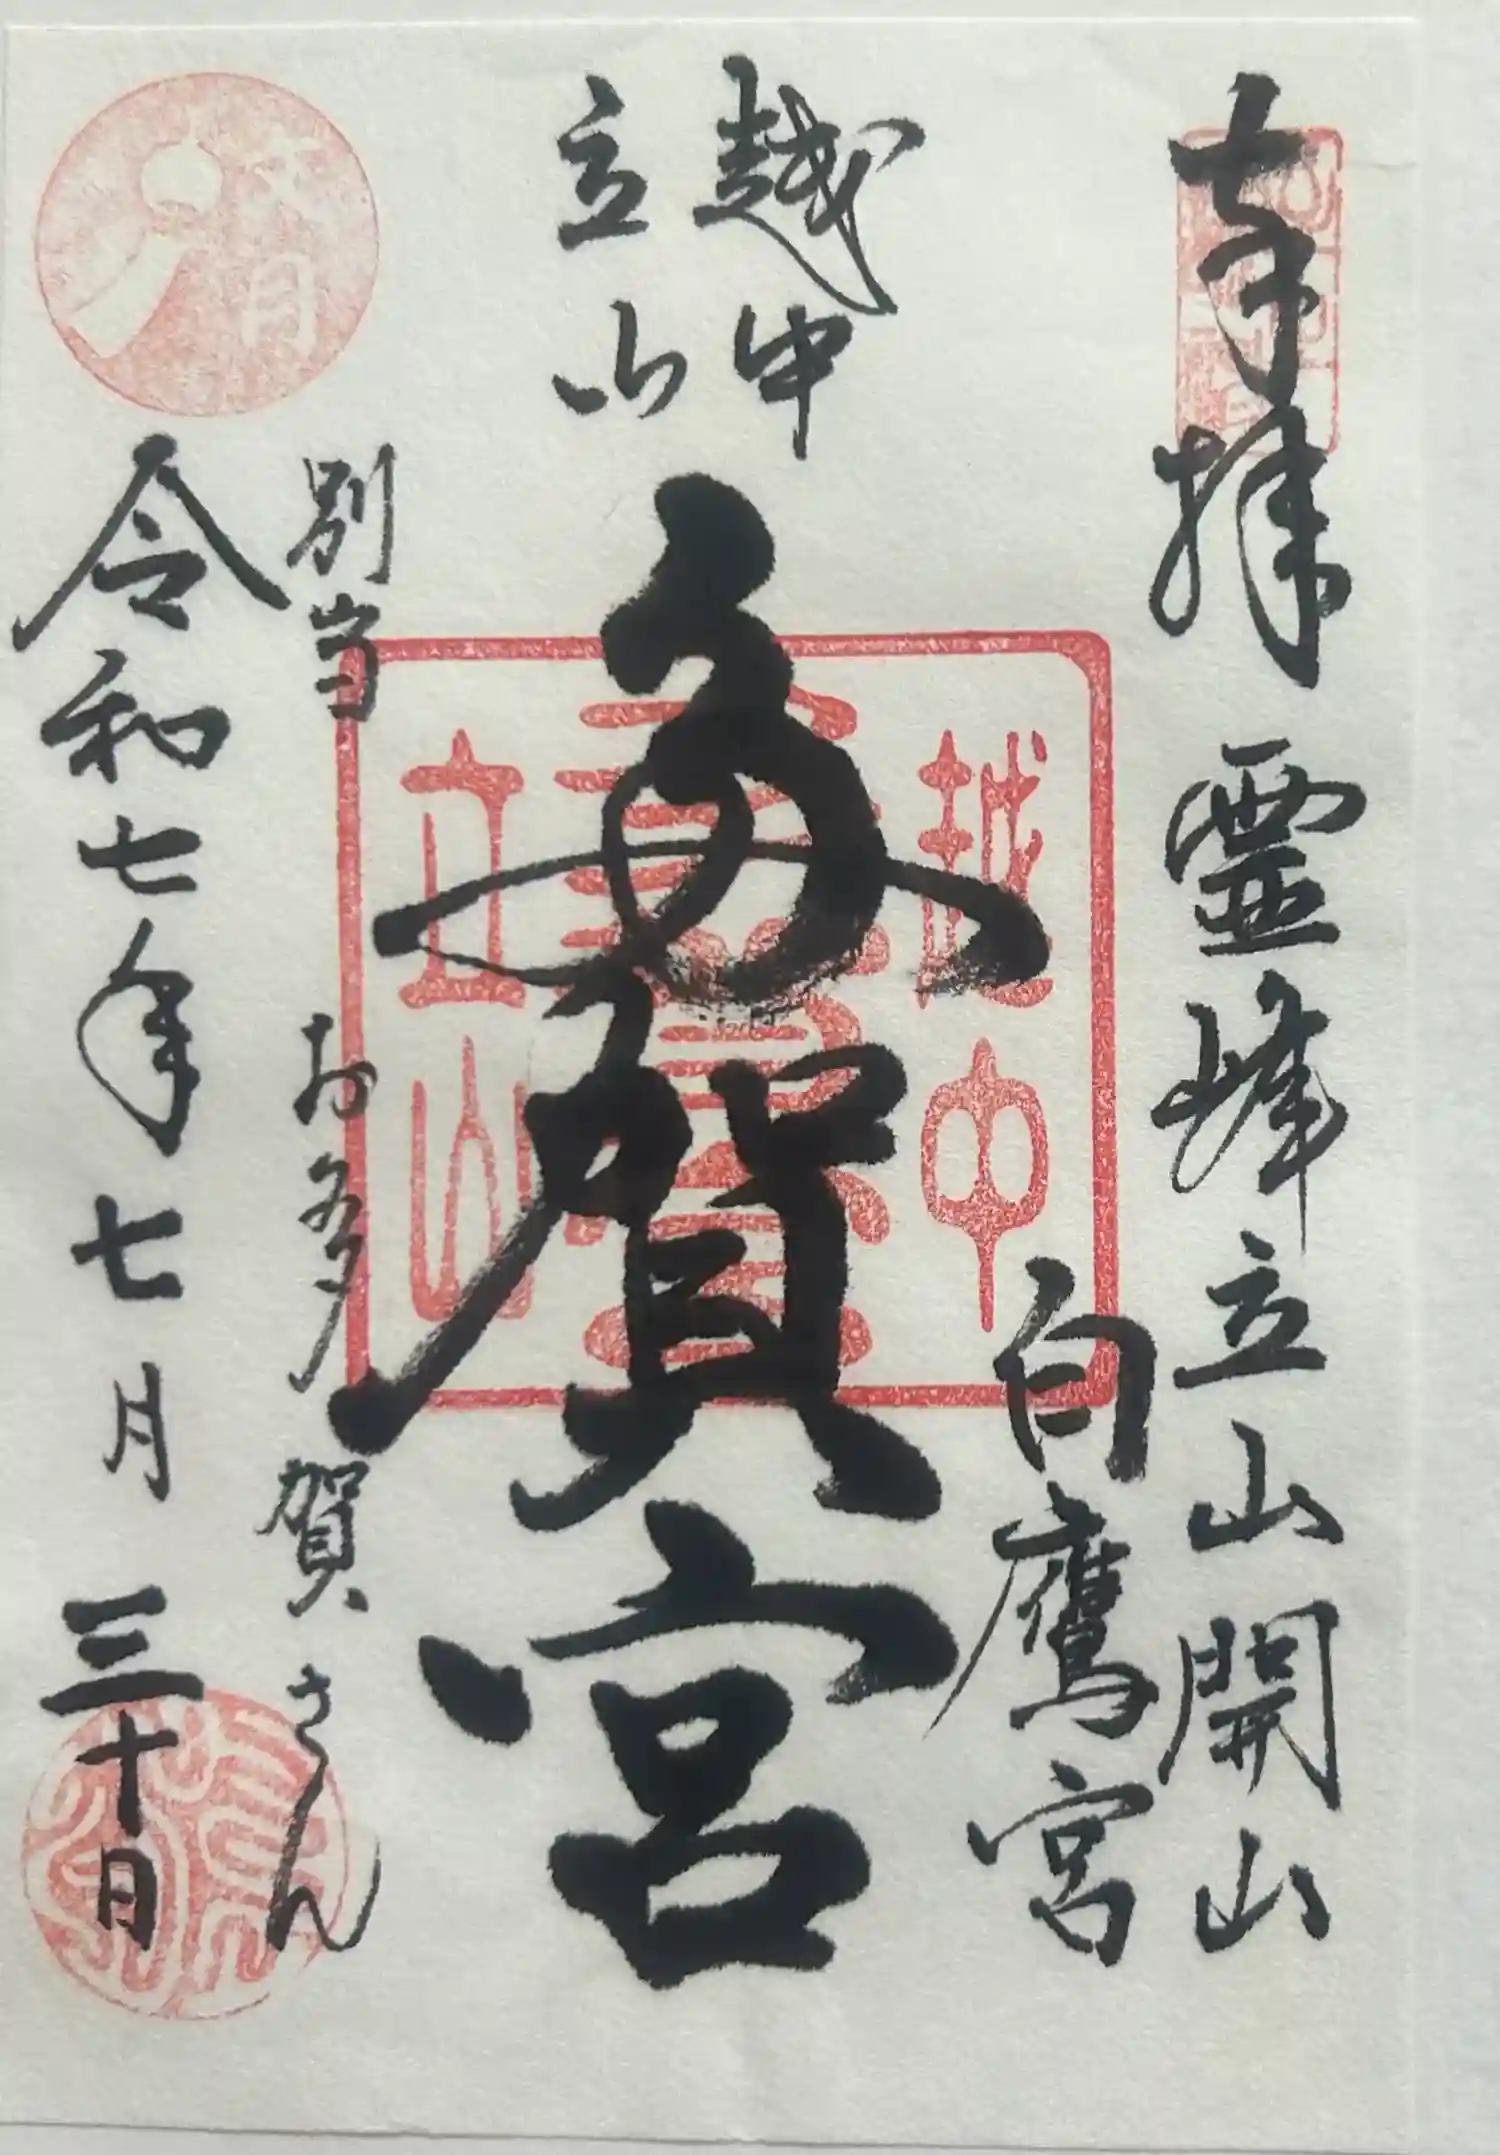 奉拝
霊峰立山開山
白鷹宮
越中
立山
多賀宮
越中
立山
別当
お多賀さん
文月
令和七年七月三十日